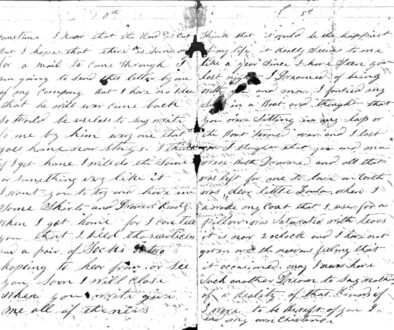 sometime I know that the Road is Cut
But I hope that there is some
for a mail to come through I
am going to send this letter by one
of my Company But I have no Idea
that he will ever come back
so would be useless to say write
to me by him
if I get home I will do the same
or something very like it
I want you to try and have me
some Shirts and Drawers Ready
when I get home for I can tell
you that I need the
and a pair of Socks or two
hoping to hear from or see
you soon I will close
When you write give
me all of the news
5th
think that it would be the happiest
of my life it Really Seems to me
like a year Since I have Seen you
last night I Dreamed of being
with you and ma I fancied my
Self in a Boat and thought that
you were Sitting in my lap or
the Boat turned over and I lost
you I thought that you and ma
were both Drowned and all that
was left for me to love on earth
was dear little when I
a made my Coat that I use for a
pillow was Saturated with tears
it is now 2 oclock and I have not
gotten over the nervous feeling that
it occasioned may I never have
Such another Dream to Say nothing
of a Reality of that kind if
I were to be Bereft of you I